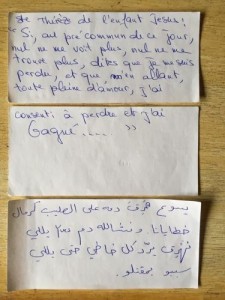 Ste Thérèse de l'enfant Jesus:
"Si, au pré commun de ce jour,
nul ne me voit plus, nul ne me
trouve plus, dites que je me suis
perdue, et que m'en allant,
toute pleine d'amour, j'ai
consenti à perdre et j'ai
Gagné.... "
يسوع هرق دمه على الصليب كرمال
خطايانا و نشالله دم يللي
يردّ كل خاطي حتى يللي